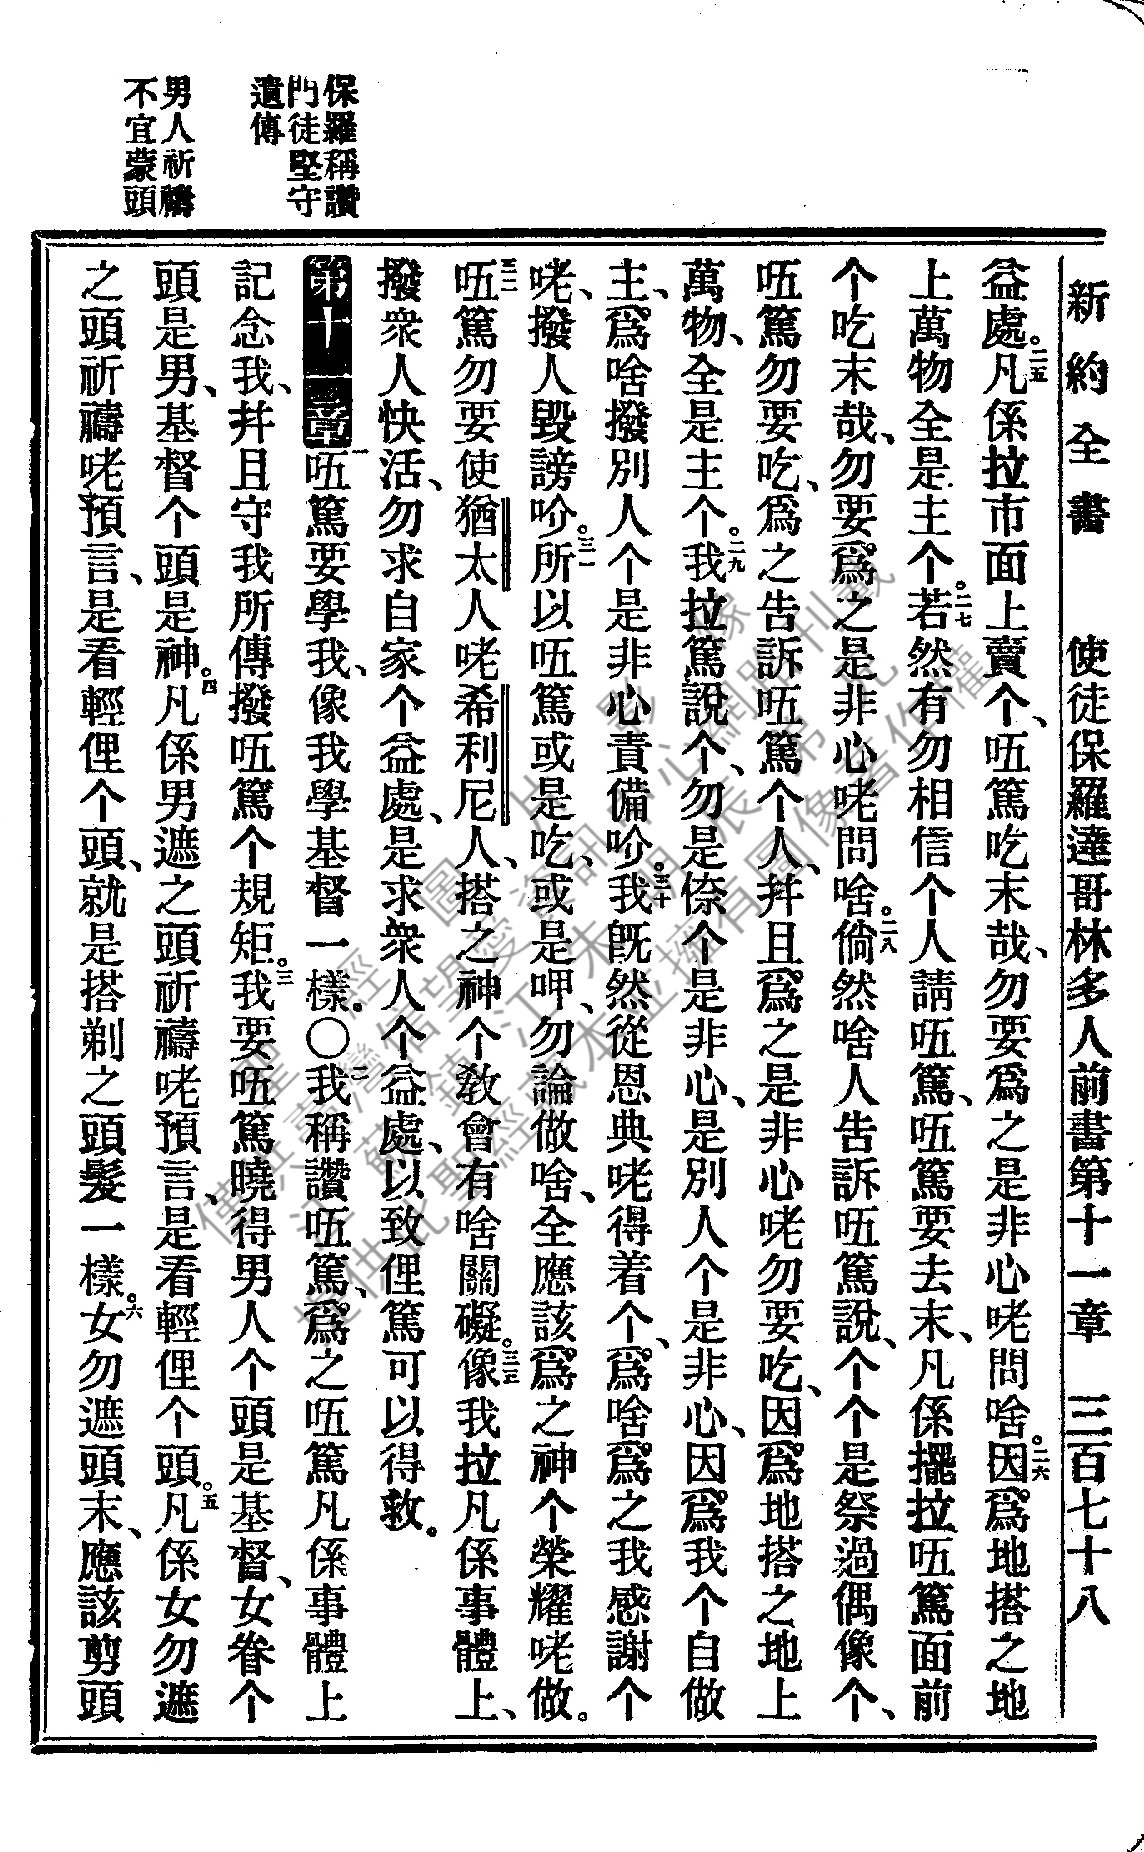 新約全書　使徒保羅達哥林多人前書第十一章　三百七十八
益處。二五凡係拉市面上賣个、𠲎篤吃末哉、勿要爲之是非心咾問啥。二六因爲地搭之地
上萬物全是主个。二七若然有勿相信个人請𠲎篤、𠲎篤要去末、凡係擺拉𠲎篤面前
个吃末哉、勿要爲之是非心咾問啥。二八倘然啥人告訴𠲎篤說、个个是祭過偶像个、
𠲎篤勿要吃、爲之告訴𠲎篤个人、幷且爲之是非心咾勿要吃、因爲地搭之地上
萬物、全是主个。二九我拉篤說个、勿是倷个是非心、是別人个是非心、因爲我个自做
主、爲啥撥別人个是非心責備吤。三十我旣然從恩典咾得着个、爲啥爲之我感謝个
咾、撥人毀謗吤。三一所以𠲎篤或是吃、或是呷、勿論做啥、全應該爲之神个榮耀咾做。
三二𠲎篤勿要使猶太人咾希利尼人、搭之神个教會有啥關礙。三三像我拉凡係事體上、
撥衆人快活、勿求自家个益處、是求衆人个益處、以致俚篤可以得救。
第十一章一𠲎篤要學我、像我學基督一樣。〇二我稱讚𠲎篤、爲之𠲎篤凡係事體上
記念我、幷且守我所傳撥𠲎篤个規矩。三我要𠲎篤曉得男人个頭是基督、女眷个
頭是男、基督个頭是神。四凡係男遮之頭祈禱咾預言、是看輕俚个頭。五凡係女勿遮
之頭祈禱咾預言、是看輕俚个頭、就是搭剃之頭髮一樣。六女勿遮頭末、應該剪頭
保羅稱讚
門徒堅守
遺傳
男人祈禱
不宜蒙頭